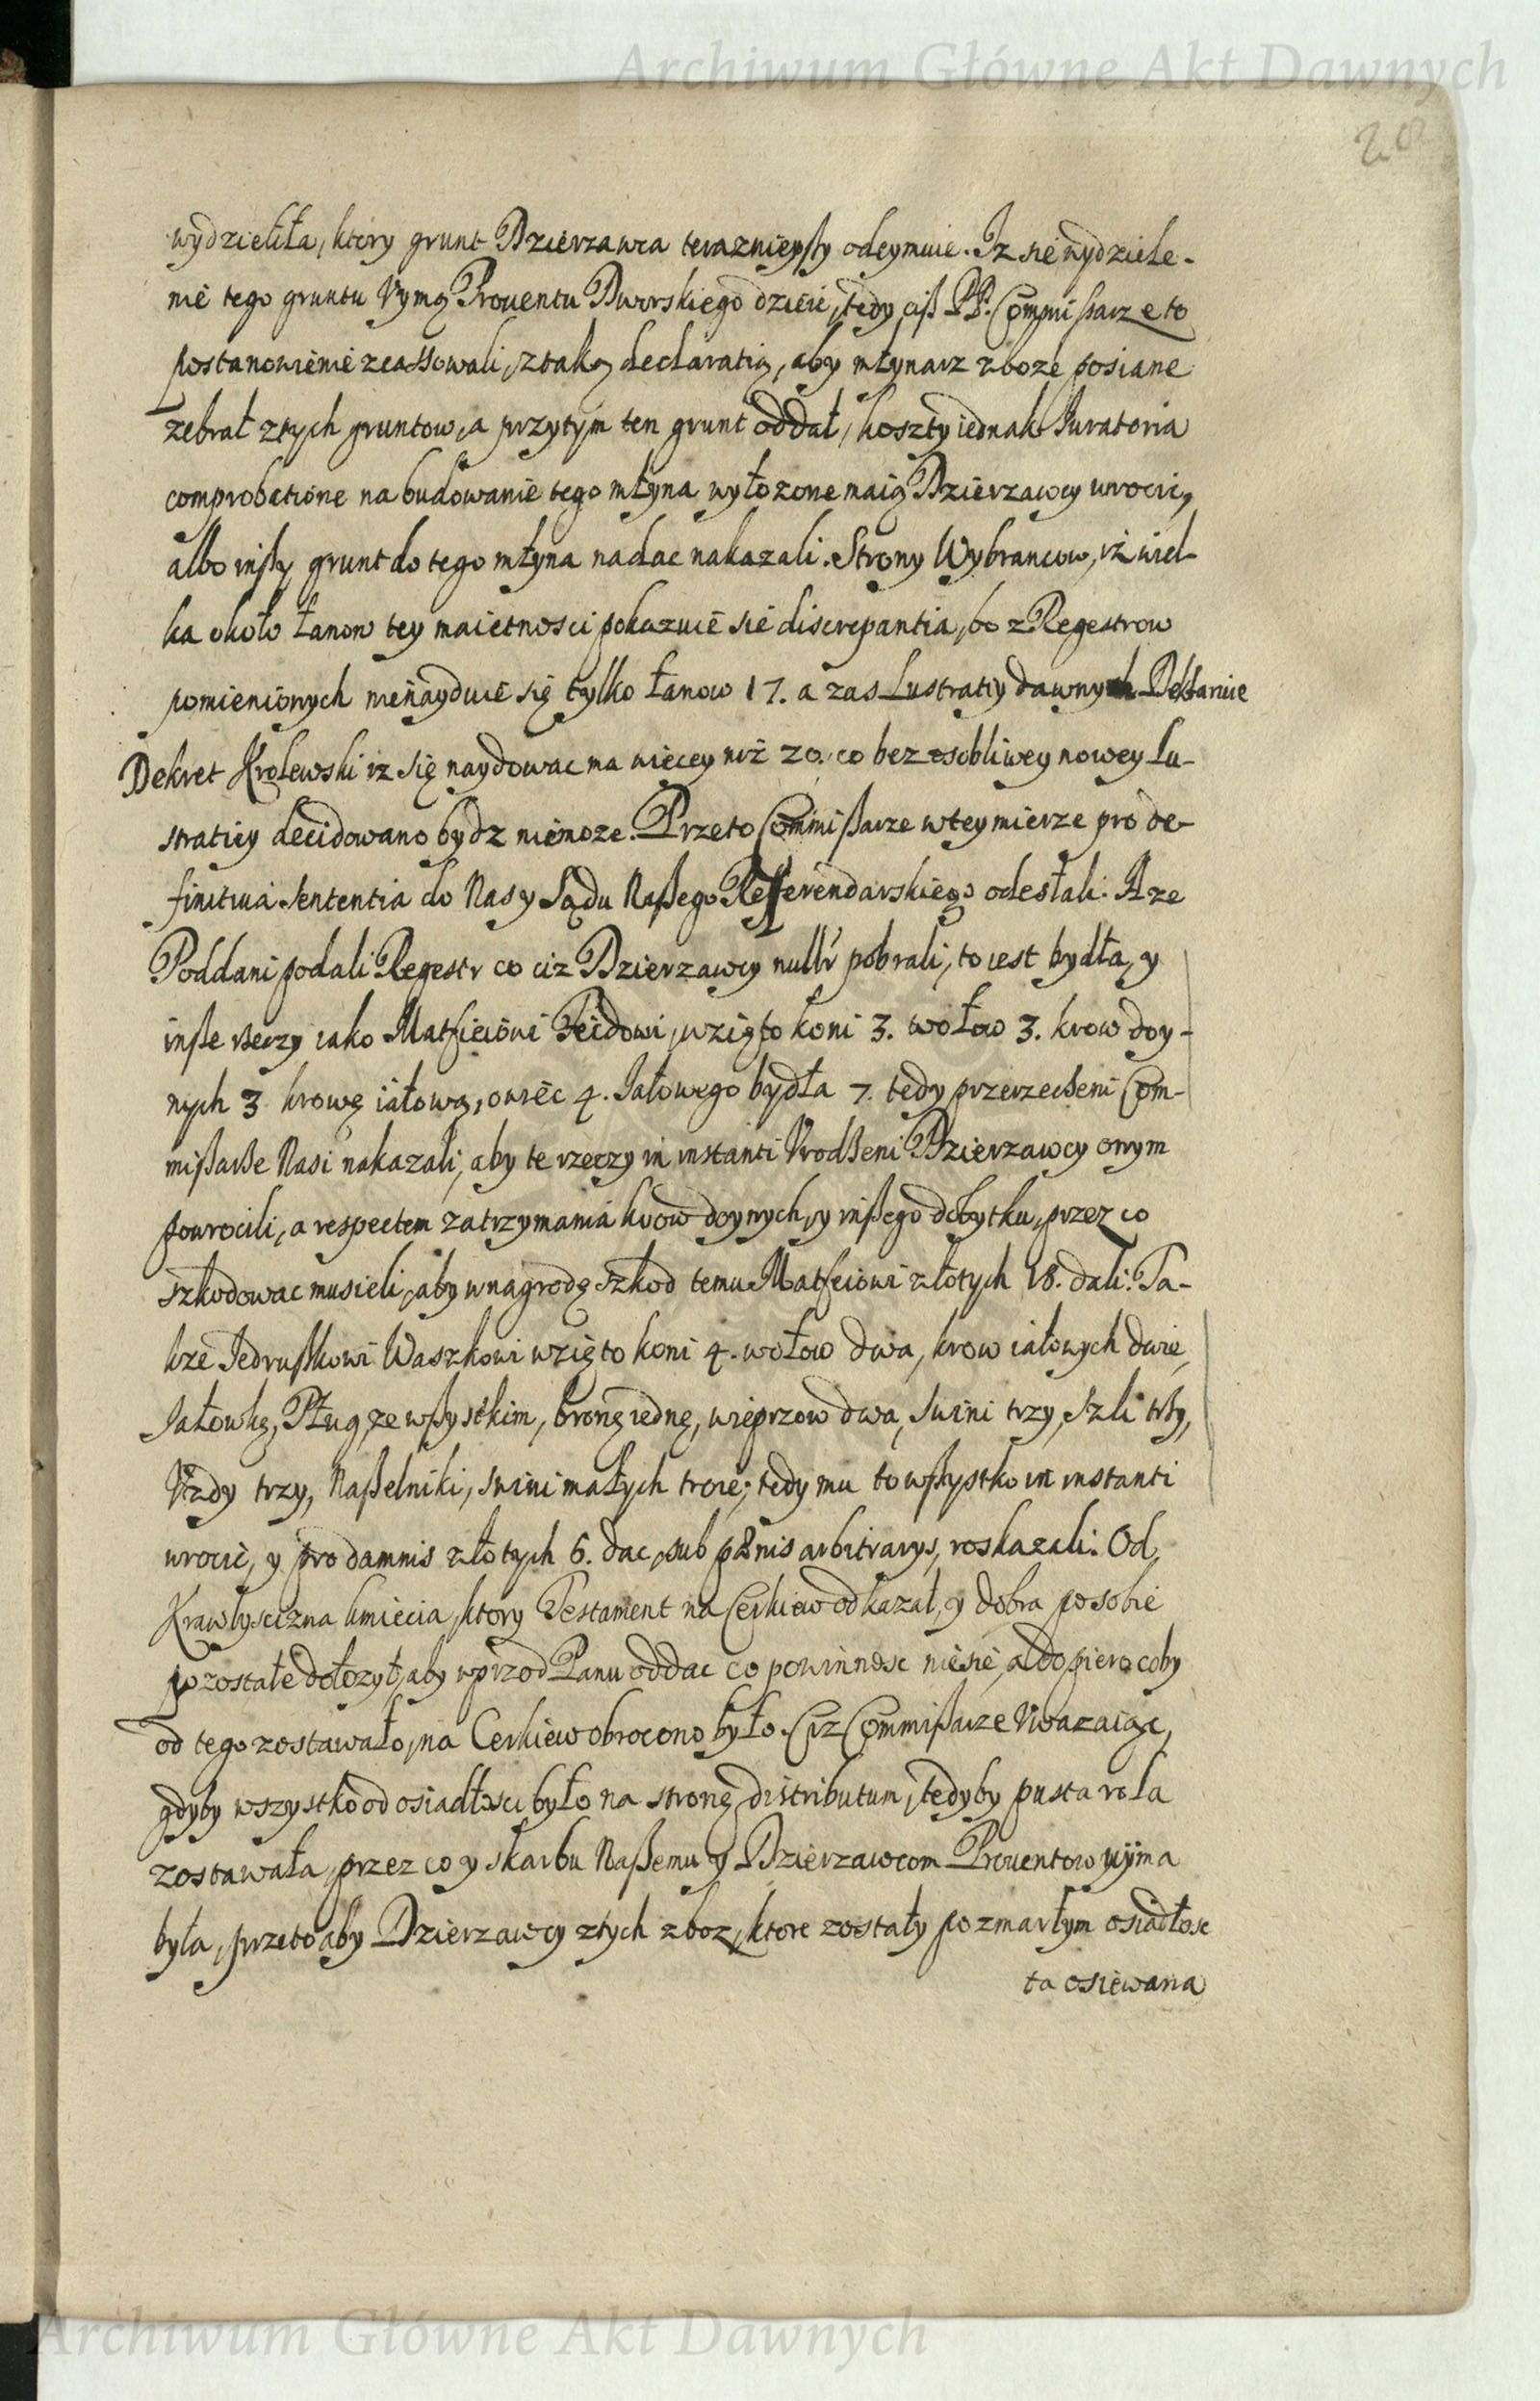 Archiwum Główne Akt Dawnych
28
wydzieliła, ktory grunt Dzierzawca teraznieyßy odeymuie. Iz sie wydziele-
nie tego gruntu Vymą Prouentu Dworskiego dzieie, tedy ciß PP. Commißarze to
postanowienie zcassowali, z taką declaratią, aby młynarz zboze posiane
zebrał z tych gruntow, a przytym ten grunt oddał, koszty iednak Iuratoria
comprobatione na budowanie tego młyna wyłozone maią Dzierzawcy wrocic,
albo inßy grunt do tego młyna nadac nakazali. Strony Wybrancow, iż wiel-
ka około Łanow tey maietnosci pokazuie sie discrepantia, bo z Regestrow
pomienionych nienayduie się tylko Łanow 17. a zas Lustratiy dawny
Dekret Krolewski iz się naydowac ma wiecey niż 20. co bez osobliwey nowey Lu-
stratiey decidowano bydz niemoze. Przeto Commißarze w tey mierze pro de-
finitiua sententia do Nas y Sądu Naßego Referendarskiego odesłali. A ze
Poddani podali Regestr co ciz Dzierzawcy pobrali, to iest bydła, y
inße rzeczy iako Matfieiowi Feidowi, wzięto koni 3. wołow 3. krow doy-
nych 3 krowę iałową, owiec 4. Iałowego bydła 7. tedy przerzeczeni Com-
mißarße Nasi nakazali, aby te rzeczy in instanti Vrodßeni Dzierzawcy onym
powrocili, a respectem zatrzymania krow doynych, y inßego dobytku, przez co
szkodowac musieli, aby w nagrodę szkod temu Matfeiowi złotych 18. dali. Ta-
kze Iedrußkowi Waszkowi wzięto koni 4. wołow dwa, krow iałowych dwie,
Iałowkę, Pług ze wßystkim, bronę iednę, wieprzow dwa, swini trzy, szli trßy,
Vzdy trzy, Naßelniki, swini małych troie; tedy mu to wßystko in instanti
wrocic, y pro damnis złotych 6. dac, sub pœnis arbitrarys, roskazali. Od
Krawłyscizna kmiecia, ktory Testament na Cerkiew odkazał, y dobra po sobie
pozostałe dołozył, aby wprzod Panu oddac co powinnosc niesie, a dopiero coby
od tego zostawało, na Cerkiew obrocono było. Ciz Commißarze Vwazaiąc,
gdyby wszystko od osiadłosci było na stronę distributum, tedyby pusta rola
zostawała, przez co y skarbu Naßemu y Dzierzawcom Prouentow uyma
była, przeto aby Dzierzawcy z tych zboz, ktore zostały po zmarłym osiadłosc
ta osiewana
Archiwum Główne Akt Dawnych